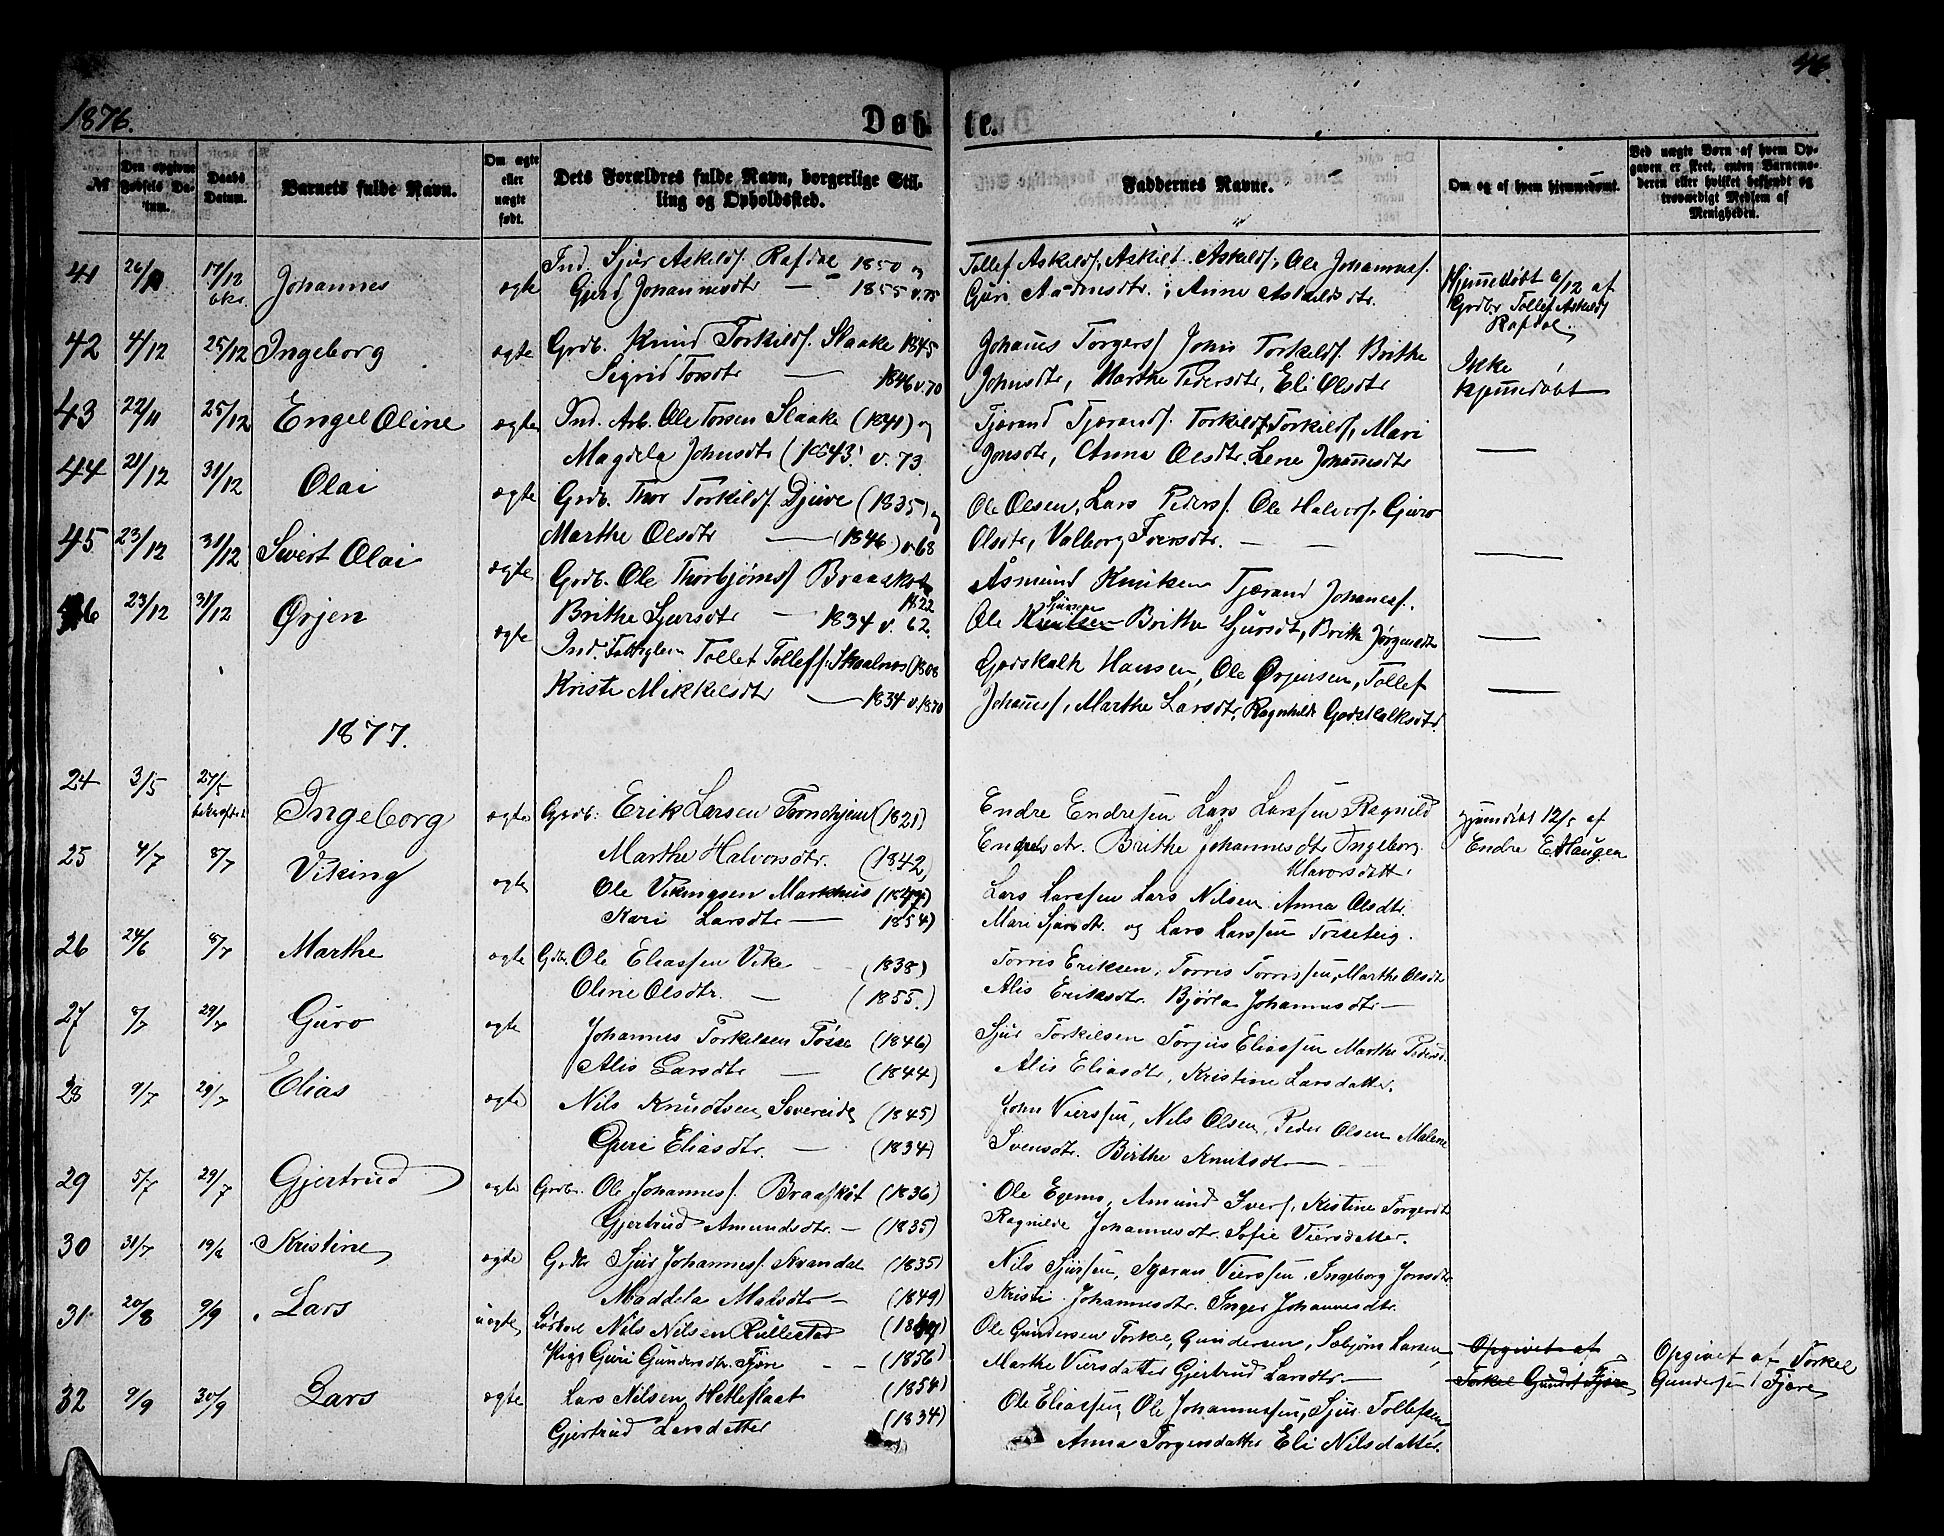 46.
1876.
Døb- te.
№
Den opgivne Fødsels Datum.
Daabs Datum.
Barnets fulde Navn.
Om ægte eller uægte født.
Dets Forældres fulde Navn, borgerlige Stilling og Opholdssted.
Faddernes Navne.
Om og af hvem hjemmedøbt.
Ved uægte Børn af hvem Opgaven er skeet, enten Barnemoderen eller hvilket bekjendt og troværdigt Medlem af Menigheden.
41 26/11 17/12 Johannes ægte Ind. Sjur Askelds. Rafdal 1850 og
Gjerd Johannesdtr — 1855 v. 75
Tollef Askilds, Askild Askelds, Ole Johanness.
Guri Aadnesdtr. Anne Askeldsdtr.
Hjemmedøbt 6/12 af
Grdbr Tollef Askilds
Rafdal.
42 4/12 25/12 Ingeborg ægte Grdb. Knud Torkilds. Slaake 1845
Sigrid Torsdtr — 1846 v. 70
Johannes Torgers, John Torkilds. Brithe
Johnsdtr, Marthe Pedersdtr, Eli Olsdtr
Ikke
hjemmedøbt
43 22/11 25/12 Engel Oline ægte Ind. Arb. Ole Torsen Slaake (1841) og
Magdela Johnsdtr (1843. v. 73.
Tjærand Tjærands. Torkild Torkilds, Mari
Jonsdtr, Anna Olsdtr. Lene Johannesdtr
—
44 21/12 31/12 Olai ægte Grdb. Thor Torkilds. Djuve (1835) og
Marthe Olsdtr — (1846) v. 68
Ole Olsen, Lars Peders. Ole Halvors. Guro
Olsdtr, Valborg Iversdtr. — —
—
45 23/12 31/12 Sivert Olai ægte Grdb. Ole Thorbjørns Braaskot
1822
Brithe Sjursdtr — 1834 v. 62.
Åsmund Knutsen Tjærand Johaness.
Ole Knutsen Sjursen Brithe Sjursdt, Brithe Jørgensdtr
—
46 23/12 31/12 Ørjen ægte Ind. Tollef Tollefs. Skaalnes (1808
Kristi Mikkelsdtr — 1834 v. 1870
Godskalk Hansen, Ole Ørjensen, Tollef
Johanness, Marthe Larsdtr, Ragnhilde Godskalksdtr.
—
1877.
24 3/5 27/5 bekræftet Ingeborg ægte Grdb: Erik Larsen Tornehjem (1821)
Marthe Halvorsdtr. (1842,
Endre Endresen Lars Larssen Ragnild
Endresdtr. Brithe Johannesdtr Ingeborg
Halvorsdatt.
hjemdøbt 12/5 af
Endre E. Haugen
25 4/7 8/7 Viking ægte Ole Vikingsen Markhus
Kari Larsdtr — 1854)
Lars Larssen Lars Nilsen Anna Olsdtr.
Mari Sjursdtr. og Lars Larssen Tosseteig.
26 24/6 8/7 Marthe ægte Gdbr. Ole Eliassen Vike (1838)
Oline Olsdtr. — (1855.)
Torris Eriksen, Torris Torrissen, Marthe Olsdtr
Alis Eriksdtr. Bjørla Johannesdtr —
27 8/7 29/7 Guro ægte Johannes Torkelsen Tosse (1846)
Alis Larsdtr — (1844)
Sjur Torkelsen Torjus Eliassen Marthe Pedersd.
Alis Eliasdtr, Kristine Larsdatter.
28 9/7 29/7 Elias ægte Nils Knudtsen Sævereide (1845)
Guri Eliasdtr. — (1834)
John Vierssen, Nils Olsen, Peder Olsen Malene
Svensdtr. Birthe Knutsdtr —
29 5/7 29/7 Gjertrud ægte Grdbr. Ole Johanness. Braaskot (1836)
Gjertrud Amundsdtr. — (1835)
Ole Egemo, Amund Ivers, Kristine Torgersdtr
Ragnilde Johannesdtr. Sofie Viersdatter.
30 31/7 19/8 Kristine ægte Grdbr Sjur Johanness. Kvandal (1835)
Maddela Madsdtr — (1849)
Nils Sjursen, Tjæran Vierssen, Ingeborg Jonsdtr
Kristi Johannesdtr. Inger Johannesdtr.
31. 20/8 9/9 Lars uægte Nils Nilsen Rullestad
Pige Guri Gundersdtr. Fjære — (1856)
Ole Gundersen Torkel Gundersen, Sæbjørn Larsen,
Marthe Viersdatter Gjertrud Larsdtr —
Opgivet af
Torkel Gundt Fjære
Opgivet af Torkel
Gundersen Fjære
32 9/9 30/9 Lars ægte Lars Nilsen Hetleflaat (1854)
Gjertrud Larsdatter (1834)
Ole Eliassen, Ole Johannessen, Sjur Tollefsen
Anna Torgersdatter Eli Nilsdatter.